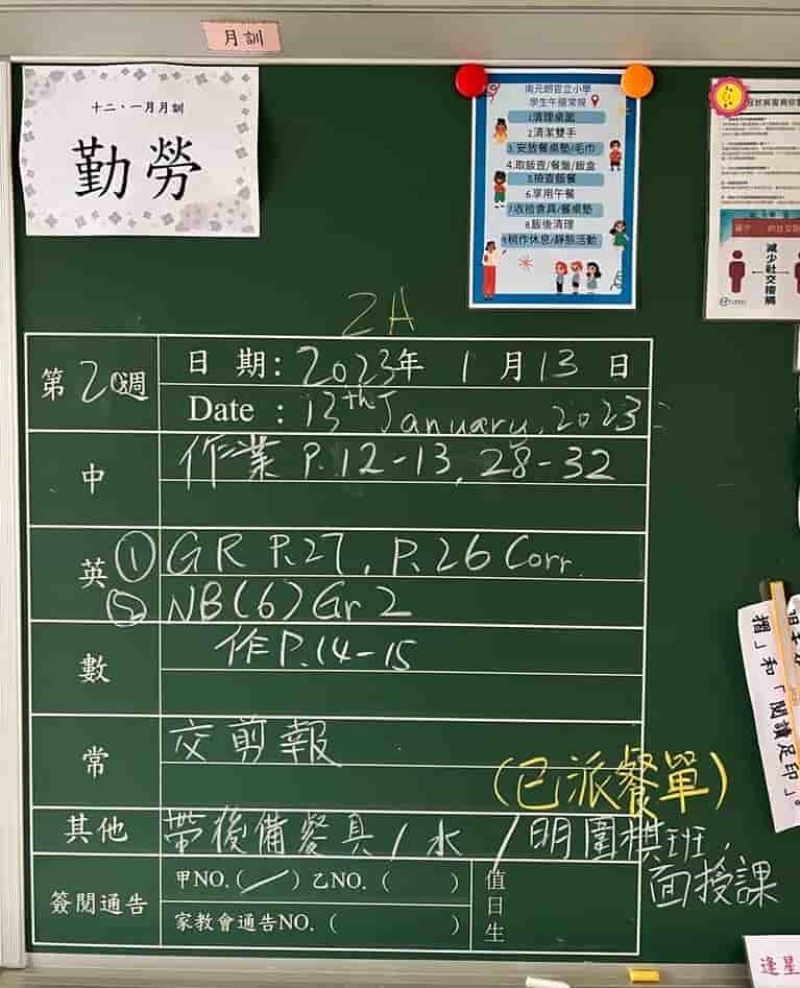 月訓
十二、一月月訓
勤勞
南元朗官立小學
學生午膳常規
1.清理桌面
2.清潔雙手
3.安放餐桌墊/毛巾
4.取飯壺/餐盤/飯盒
5.檢查飯餐
6.享用午餐
7.收拾食具/餐桌墊
8.飯後清理
9.稍作休息/靜態活動
減少社交接觸
2A
第20週
日 期: 2023年 1 月 13 日
Date : 13th January, 2023
中
作業 P.12-13, 28-32
英 ① GR P.27, P.26 Corr.
② NB(6) Gr 2
數
作P.14-15
常
交剪報
(已派餐單)
其他
帶後備餐具/水 /明圍棋班,
面授課
簽閱通告
甲NO.(／) 乙NO. ( )
家教會通告NO. ( )
值日生
摺」和「閱讀足印」。
逢星